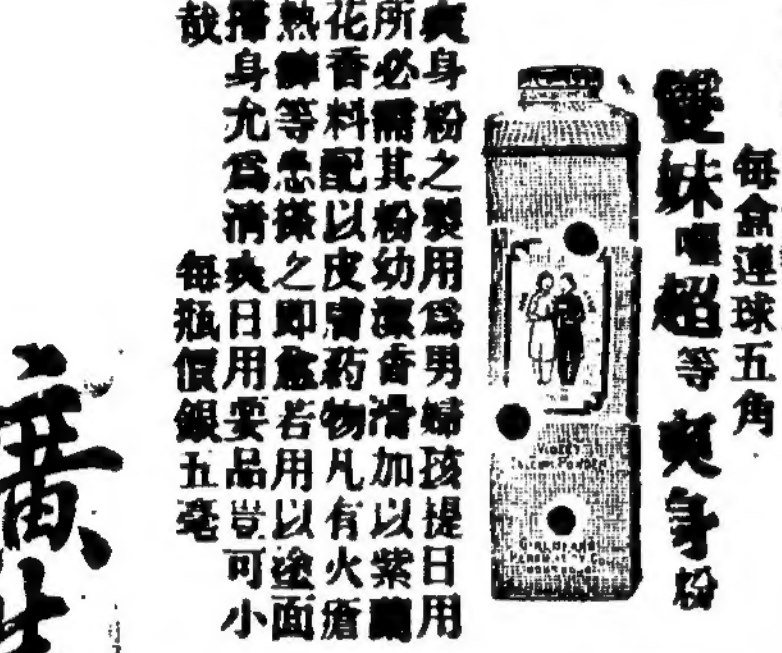 每盒連球五角
雙妹嚜超等爽身粉
VIOLET
TALCUM POWDER
爽身粉之製用爲男婦孩提日用
所必需其粉幼潔香滑加以紫蘭
花香料配以皮膚药物凡有火瘡
熱痱等患搽之即愈若用以塗面
身允爲清爽日用要品豈可小
哉 每瓶價銀五毫
廣生